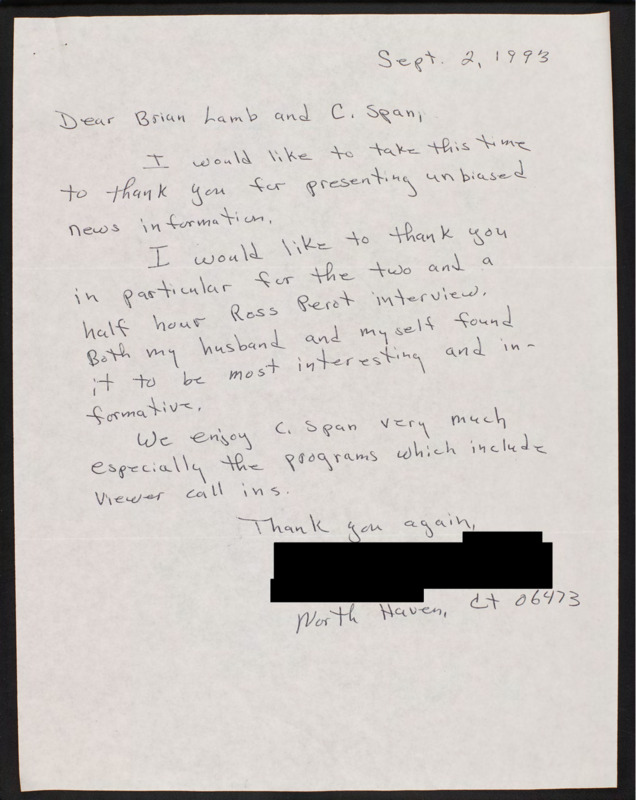 Sept. 2, 1993
Dear Brian Lamb and C. Span,
I would like to take this time
to thank you for presenting unbiased
news information.
I would like to thank you
in particular for the two and a
half hour Ross Perot interview.
Both my husband and myself found
it to be most interesting and in-
formative.
We enjoy C. Span very much
especially the programs which include
viewer call ins.
Thank you again,
North Haven, Ct 06473